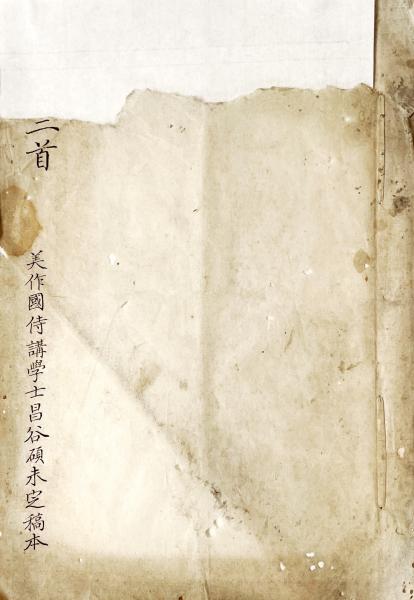 二首
美作國侍講學士昌谷碩未定稿本